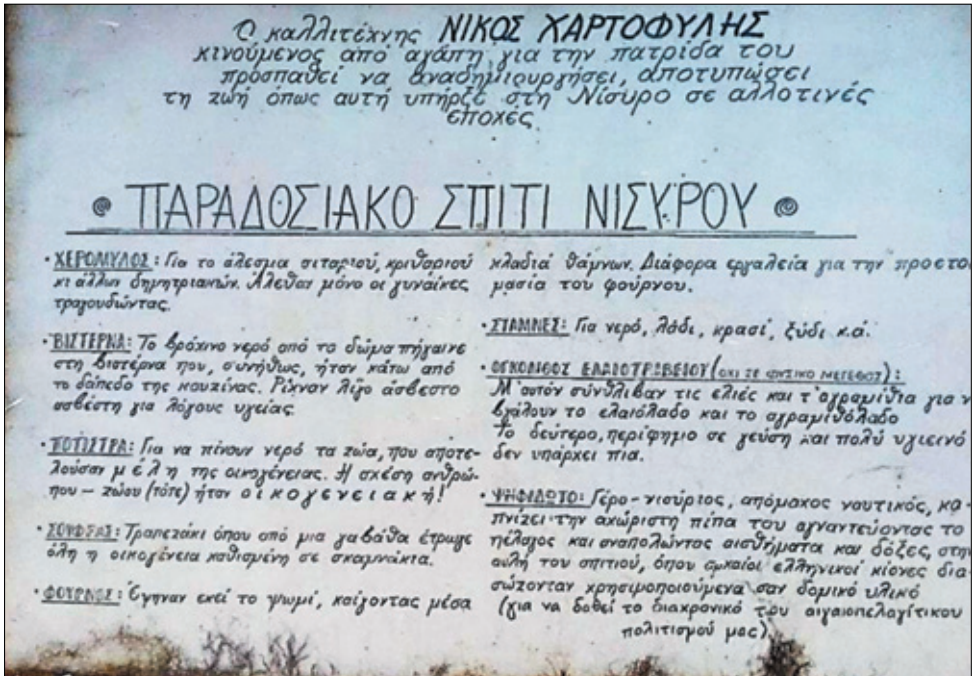 Ο καλλιτέχνης ΝΙΚΟΣ ΧΑΡΤΟΦΥΛΗΣ
κινούμενος από αγάπη για την πατρίδα του
προσπαθεί να αναδημιουργήσει, αποτυπώσει
τη ζωή όπως αυτή υπήρξε στη Νίσυρο σε αλλοτινές
εποχές
ΠΑΡΑΔΟΣΙΑΚΟ ΣΠΙΤΙ ΝΙΣΥΡΟΥ
· ΧΕΡΟΜΥΛΟΣ: Για το άλεσμα σιταριού, κριθαριού
κι άλλων δημητριακών. Άλεθαν μόνο οι γυναίκες
τραγουδώντας.
· ΒΙΣΤΕΡΝΑ: Το βρόχινο νερό από το δώμα πήγαινε
στη βιστέρνα που, συνήθως, ήταν κάτω από
το δάπεδο της κουζίνας. Ρίχναν λίγο άσβεστο
ασβέστη για λόγους υγείας.
· ΠΟΤΙΣΤΡΑ: Για να πίνουν νερό τα ζώα, που αποτε-
λούσαν μέλη της οικογένειας. Η σχέση ανθρώ-
που - ζώου (τότε) ήταν οικογενειακή!
· ΣΟΥΦΡΑΣ: Τραπεζάκι όπου από μια γαβάθα έτρωγε
όλη η οικογένεια καθισμένη σε σκαμνάκια.
· ΦΟΥΡΝΟΣ: Έψηναν εκεί το ψωμί, καίγοντας μέσα
κλαδιά θάμνων. Διάφορα εργαλεία για την προετο
μασία του φούρνου.
· ΣΤΑΜΝΕΣ: Για νερό, λάδι, κρασί, ξύδι κ.ά.
· ΟΓΚΟΛΙΘΟΣ ΕΛΑΙΟΤΡΙΒΕΙΟΥ (ΟΧΙ ΣΕ ΦΥΣΙΚΟ ΜΕΓΕΘΟΣ):
Μ' αυτόν σύνθλιβαν τις ελιές και τ' αγραμίθια για ν
βγάλουν το ελαιόλαδο και το αγραμιθόλαδο
Το δεύτερο, περίφημο σε γεύση και πολύ υγιεινό
δεν υπάρχει πια.
· ΨΗΦΙΔΩΤΟ: Γέρο-νισύριος, απόμαχος ναυτικός, κα
πνίζει την αχώριστη πίπα του αγναντεύοντας το
πέλαγος και αναπολώντας αισθήματα και δόξες, στην
αυλή του σπιτιού, όπου αρχαίοι ελληνικοί κίονες δια
σώζονταν χρησιμοποιούμενα σαν δομικό υλικό
(για να δοθεί το διαχρονικό του αιγαιοπελαγίτικου
πολιτισμού μας)